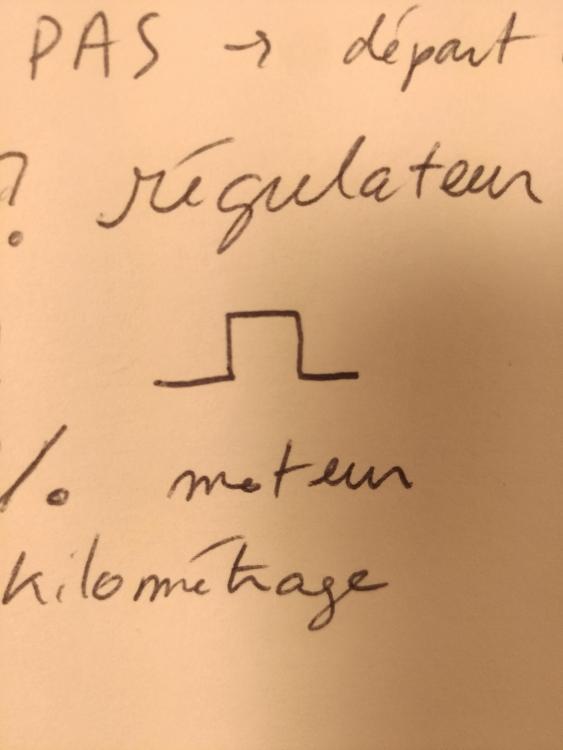 PAS → départ
? régulateur
% moteur
kilométrage